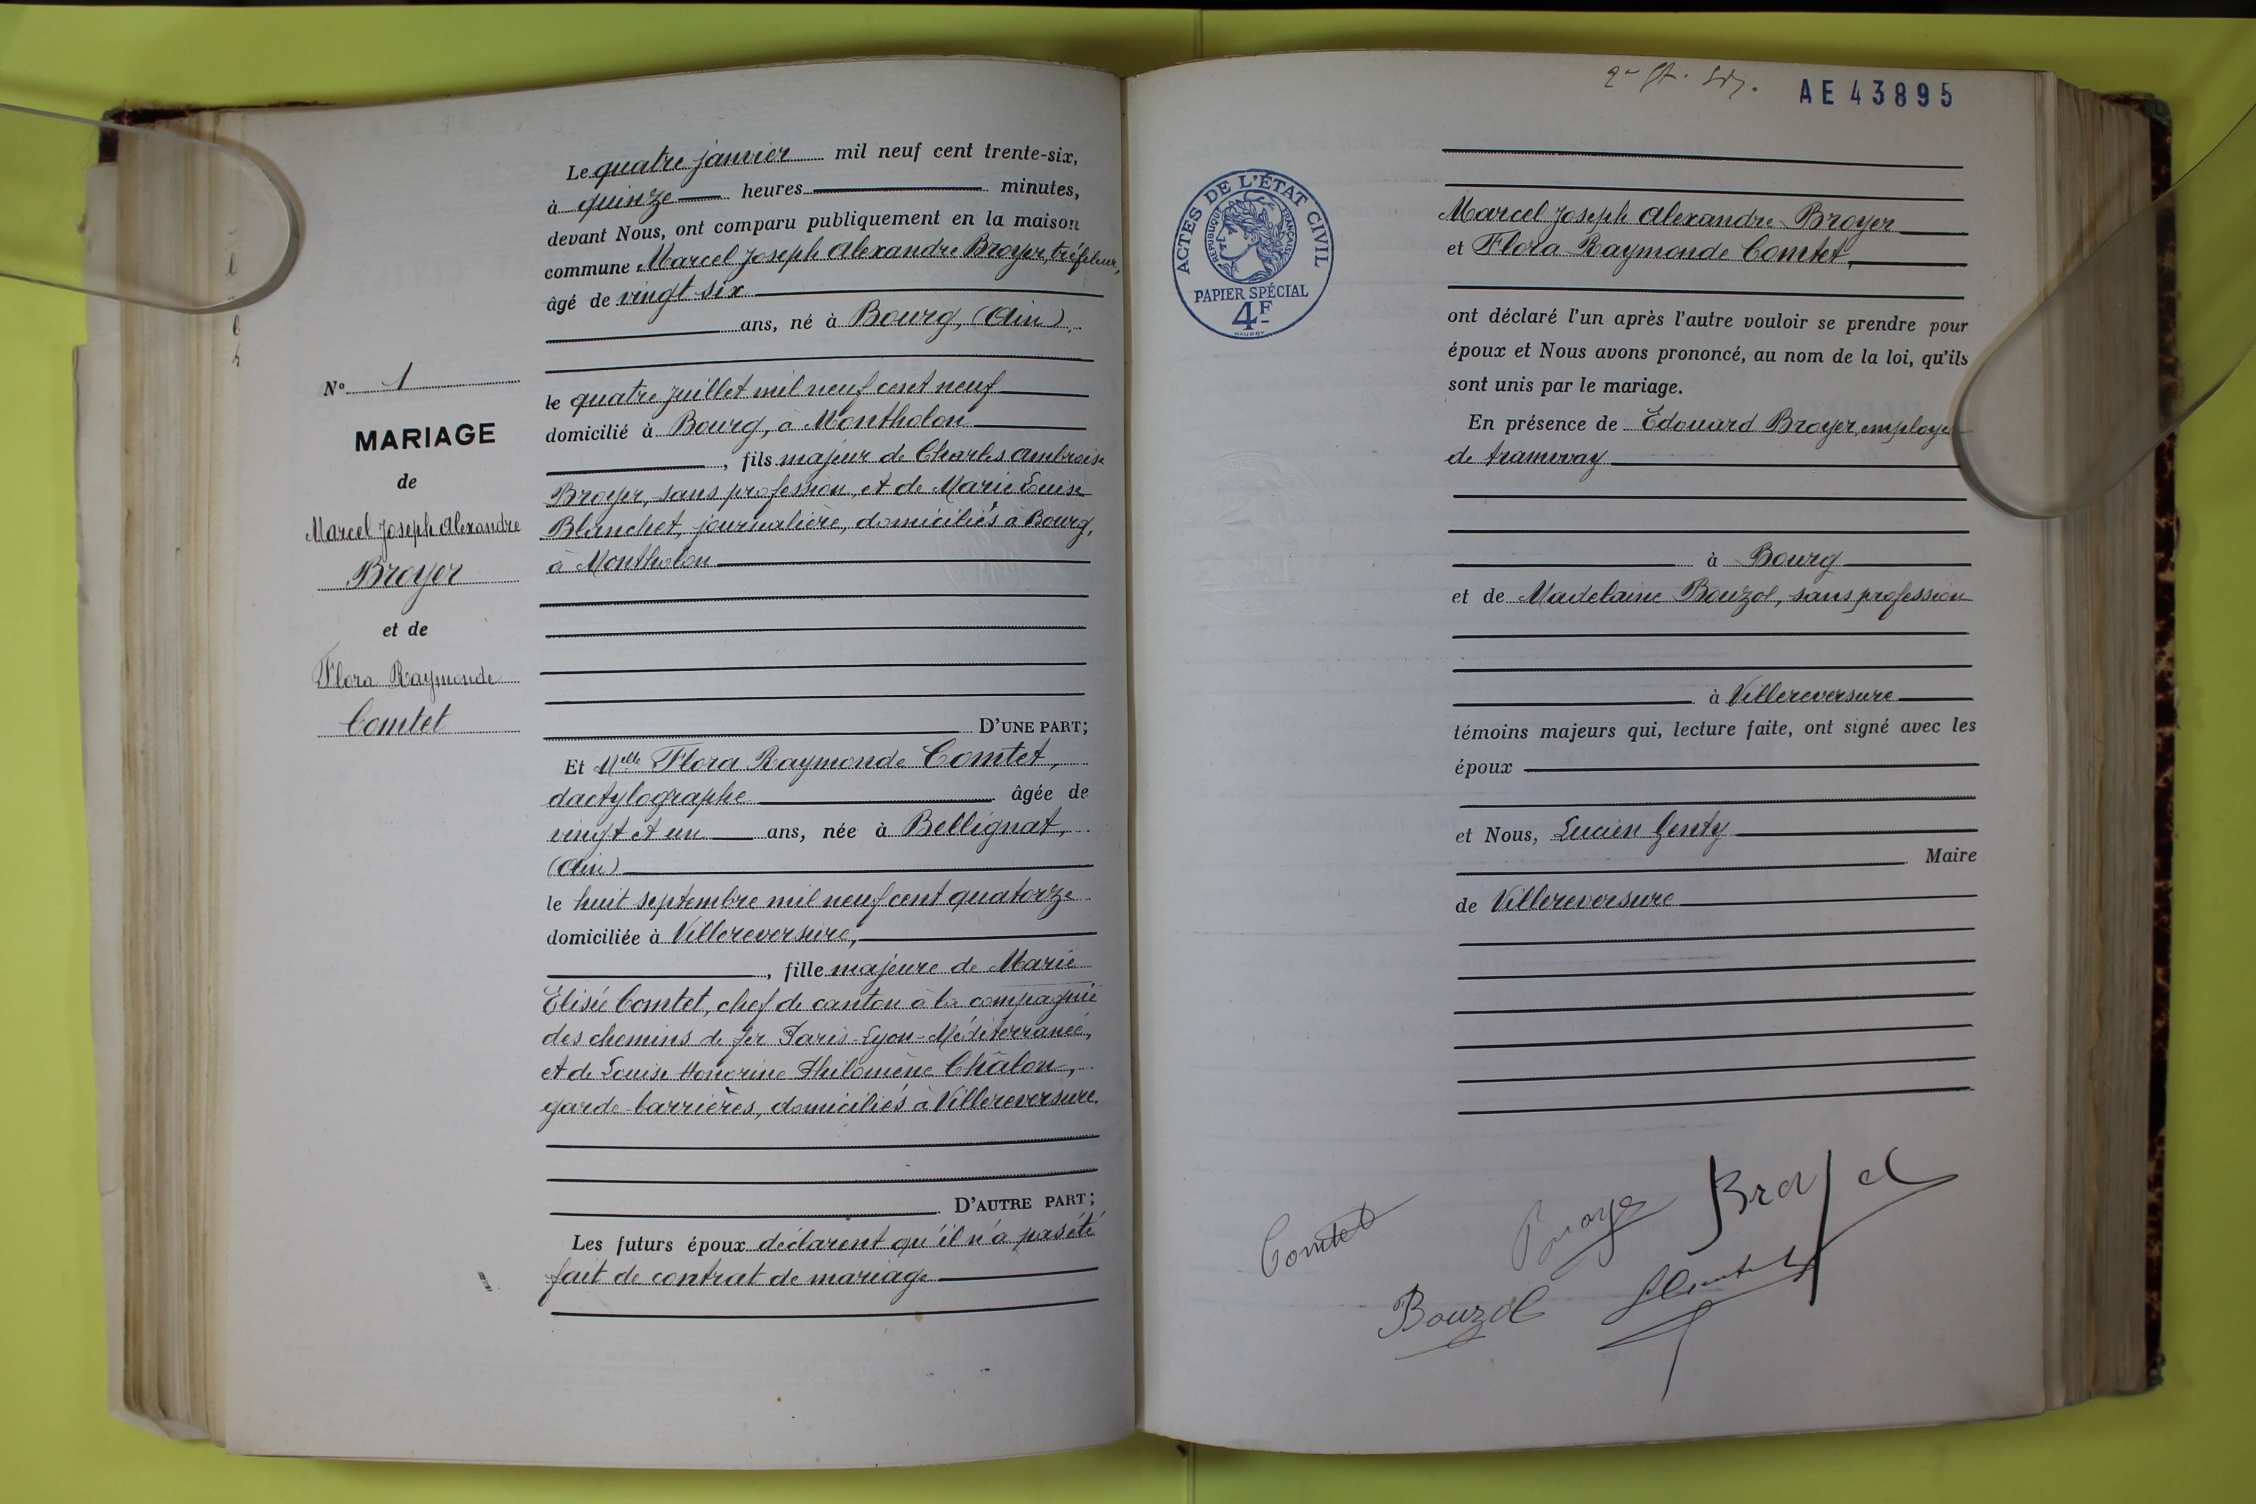 Le quatre janvier mil neuf cent trente-six,
à quinze heures minutes,
devant Nous, ont comparu publiquement en la maison
commune Marcel Joseph Alexandre Broyer, tréfileur,
âgé de vingt six
ans, né à Bourg, (Ain)
le quatre juillet mil neuf cent neuf
domicilié à Bourg, à Montholon
, fils majeur de Charles Ambroise
Broyer, sans profession, et de Marie Louise
Blanchet, journalière, domiciliés à Bourg,
à Montholon
D'UNE PART;
Et Melle Flora Raymonde Comtet,
dactylographe âgée de
vingt et un ans, née à Bellignat,
(Ain)
le huit septembre mil neuf cent quatorze
domiciliée à Villereversure,
, fille majeure de Marie
Elisée Comtet, chef de canton à la compagnie
des chemins de fer Paris-Lyon-Méditerranée,
et de Louise Honorine Philomène Châlon,
garde-barrières, domiciliés à Villereversure.
D'AUTRE PART;
Les futurs époux déclarent qu'il n'a pas été
fait de contrat de mariage
No 1
MARIAGE
de
Marcel Joseph Alexandre
Broyer
et de
Flora Raymonde
Comtet
AE 43895
ACTES DE L'ÉTAT CIVIL
RÉPUBLIQUE FRANÇAISE
PAPIER SPÉCIAL
4F
Marcel Joseph Alexandre Broyer
et Flora Raymonde Comtet,
ont déclaré l'un après l'autre vouloir se prendre pour
époux et Nous avons prononcé, au nom de la loi, qu'ils
sont unis par le mariage.
En présence de Edouard Broyer, employé
de tramway
à Bourg
et de Madelaine Bouzol, sans profession
à Villereversure
témoins majeurs qui, lecture faite, ont signé avec les
époux
et Nous, Lucien Genty
Maire
de Villereversure
Comtet Broyer Broyer
Bouzol